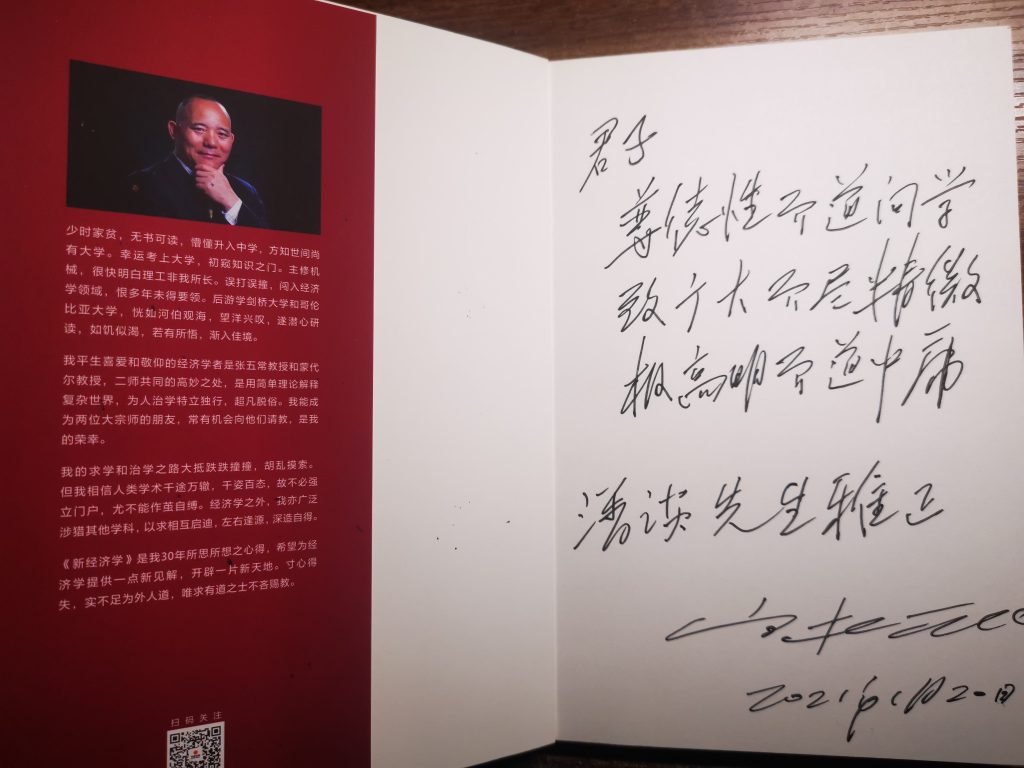 少时家贫，无书可读，懵懂升入中学，方知世间尚
有大学。幸运考上大学，初窥知识之门。主修机
械，很快明白理工非我所长。误打误撞，闯入经济
学领域，恨多年未得要领。后游学剑桥大学和哥伦
比亚大学，恍如河伯观海，望洋兴叹，遂潜心研
读，如饥似渴，若有所悟，渐入佳境。
我平生喜爱和敬仰的经济学者是张五常教授和蒙代
尔教授，二师共同的高妙之处，是用简单理论解释
复杂世界，为人治学特立独行，超凡脱俗。我能成
为两位大宗师的朋友，常有机会向他们请教，是我
的荣幸。
我的求学和治学之路大抵跌跌撞撞，胡乱摸索。
但我相信人类学术千途万辙，千姿百态，故不必强
立门户，尤不能作茧自缚。经济学之外，我亦广泛
涉猎其他学科，以求相互启迪，左右逢源，深造自得。
《新经济学》是我30年所思所想之心得，希望为经
济学提供一点新见解，开辟一片新天地。寸心得
失，实不足为外人道，唯求有道之士不吝赐教。
扫码关注
君子
尊德性而道问学
致广大而尽精微
极高明而道中庸
潘 先生雅正
2021年1月20日